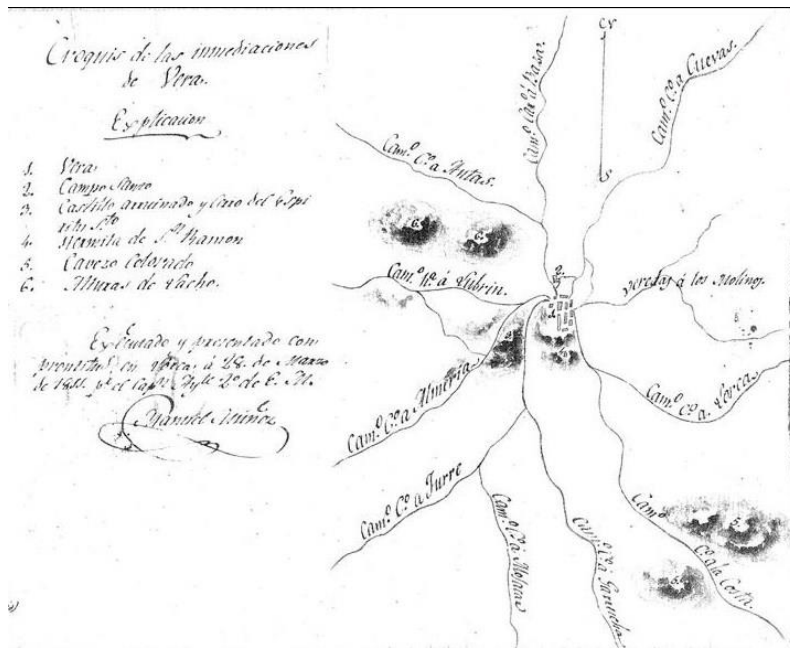 Croquis de las inmediaciones
de Vera.
Explicacion
1. Vera
2. Campo Santo
3. Castillo arruinado y Cerro del Espi
ritu Sto
4. Hermita de Sn Ramon
5. Cavezo Colorado
6. Alturas de
Executado y presentado con
prontitud en á 28. de Marzo
de 1811. pr el Capn 2º de E. M.
Manuel
N
S
Camo Co a Cuevas.
Camo á Baza.
Camo Co a Antas.
6.
6.
2.
1.
Camo á Lubrin.
Veredas á los Molinos.
Camo Co a Almeria
Camo Co a Lorca
Camo Co a Turre
Camo Co a Mojacar
Camo Co a Garrucha
Camo
Co a la Costa.
5.